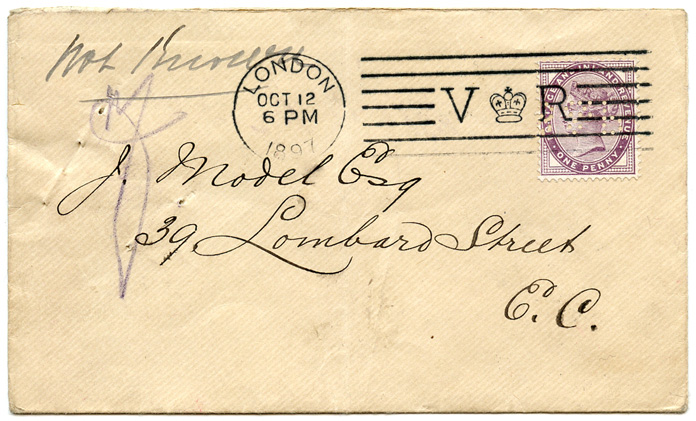 Not Known
LONDON
OCT 12
6 PM
1897
V R
POSTAGE AND INLAND REVENUE
ONE PENNY
J. Model Esq
39, Lombard Street
E. C.